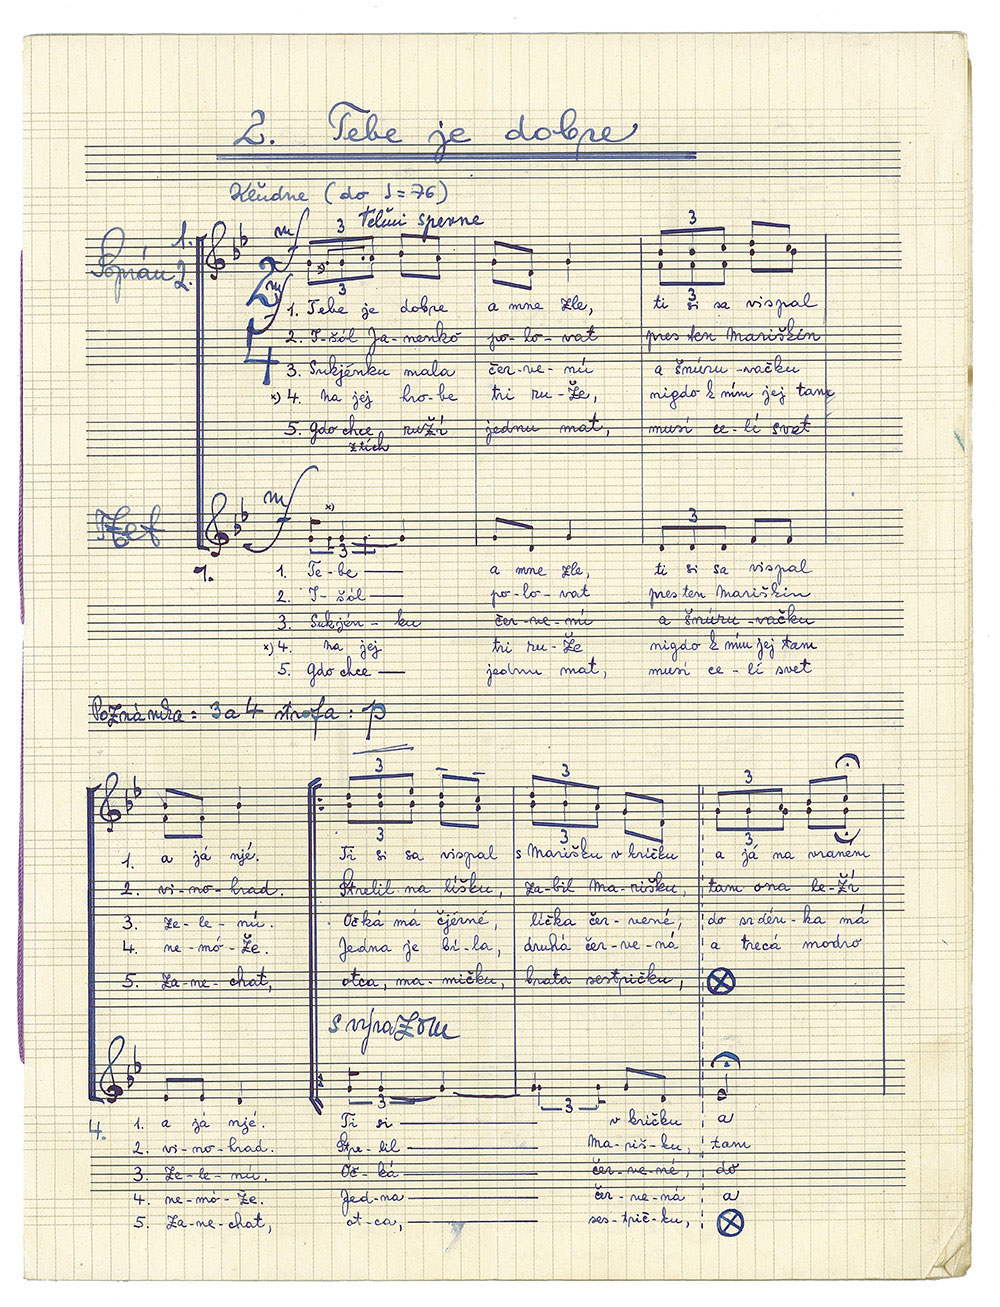 2. Tebe je dobre
Kľudne (do ♩=76)
3 télmi spevne 3
Soprán 1. 2.
mf
mf
2 4
3 3
1. Tebe je dobre a mne zle, ti si sa vispal
2. I-šól Ja-nenkó po-lo-vat pres ten Mariškin
3. Sukjénku mala čer-ve-nú a šnúru-vačku
x) 4. na jej hro-be tri ru-že, nigdo k ním jej tam
5. Gdo chce ruží jednu mat, musí ce-lí svet
zlích
mf x) 3
3
1.
1. Te-be a mne zle, ti si sa vispal
2. I-šól po-lo-vat pres ten Mariškin
3. Sukjén-ku čer-ve-nú a šnúru-vačku
x) 4. na jej tri ru-že nigdo k ním jej tam
5. Gdo chce jednu mat, musí ce-lí svet
Poznámka: 3 a 4 strofa: p
3 3 3
3 3 3
1. a já njé. Ti si sa vispal s Marišku v kríčku a já na vraném
2. vi-no-hrad. Strelil na líšku, za-bil Ma-rišku, tam ona le-ží
3. ze-le-nú. Očká má čjérné, líčka čer-vené, do srdén-ka má
4. ne-mó-že. Jedna je bí-la, druhá čer-ve-ná a trecá modro
5. Za-ne-chat, otca, ma-mičku, brata sestričku,
s výrazom
3 3
4.
1. a já njé. Ti si v kríčku a
2. vi-no-hrad. Stre-lil Ma-riš-ku, tam
3. Ze-le-nú. Oč-ká čer-ve-né, do
4. ne-mó-že. Jed-na čer-ve-ná a
5. Za-ne-chat, ot-ca, ses-trič-ku,